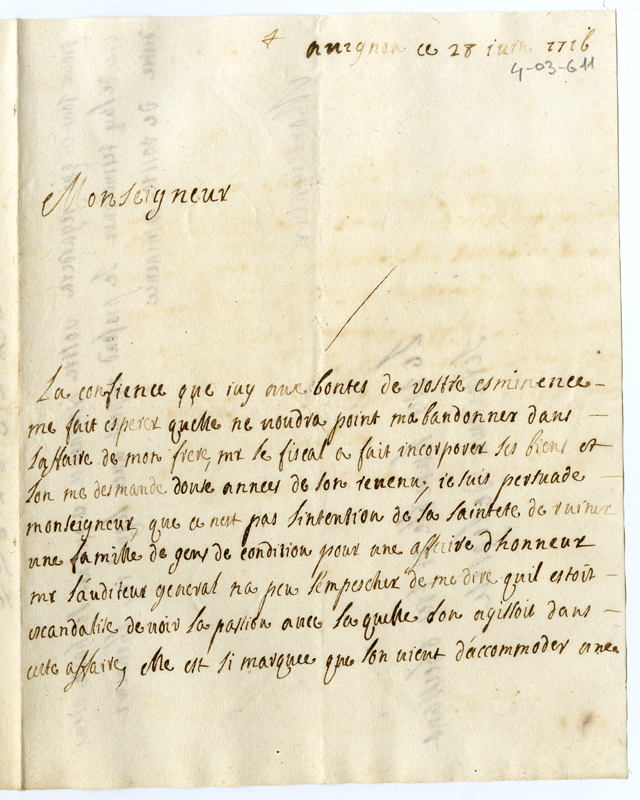 avignon ce 28 iuin 1716
4-03-611
Monseigneur
La confience que iay aux bontes de vostre esminence
me fait esperer quelle ne voudra point mabandonner dans
laffaire de mon frere, mr le fiscal a fait incorporer ses biens et
lon me desmande douse annees de son revenu, ie suis persuade
monseigneur, que ce nest pas lintention de sa saintete de ruiner
une famille de gens de condition pour une affaire dhonneur
mr lauditeur general na peu sempescher de me dire quil estoit
escandalise de voir la passion avec laquelle lon agissoit dans
cette affaire, elle est si marquee que lon vient daccommoder une